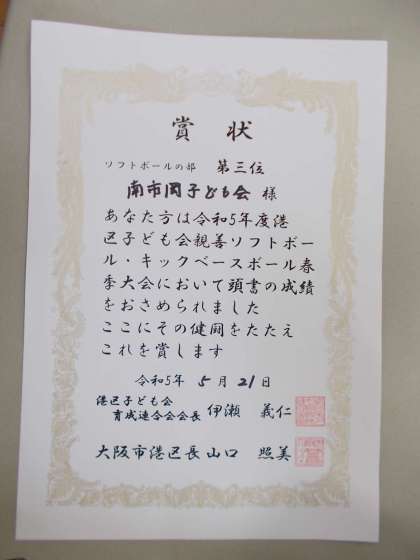 賞状
ソフトボールの部 第三位
南市岡子ども会 様
あなた方は令和5年度港
区子ども会親善ソフトボー
ル・キックベースボール春
季大会において頭書の成績
をおさめられました
ここにその健闘をたたえ
これを賞します
令和5年 5月21日
港区子ども会
育成連合会会長 伊瀬 義仁
大阪市港区長 山口 照美